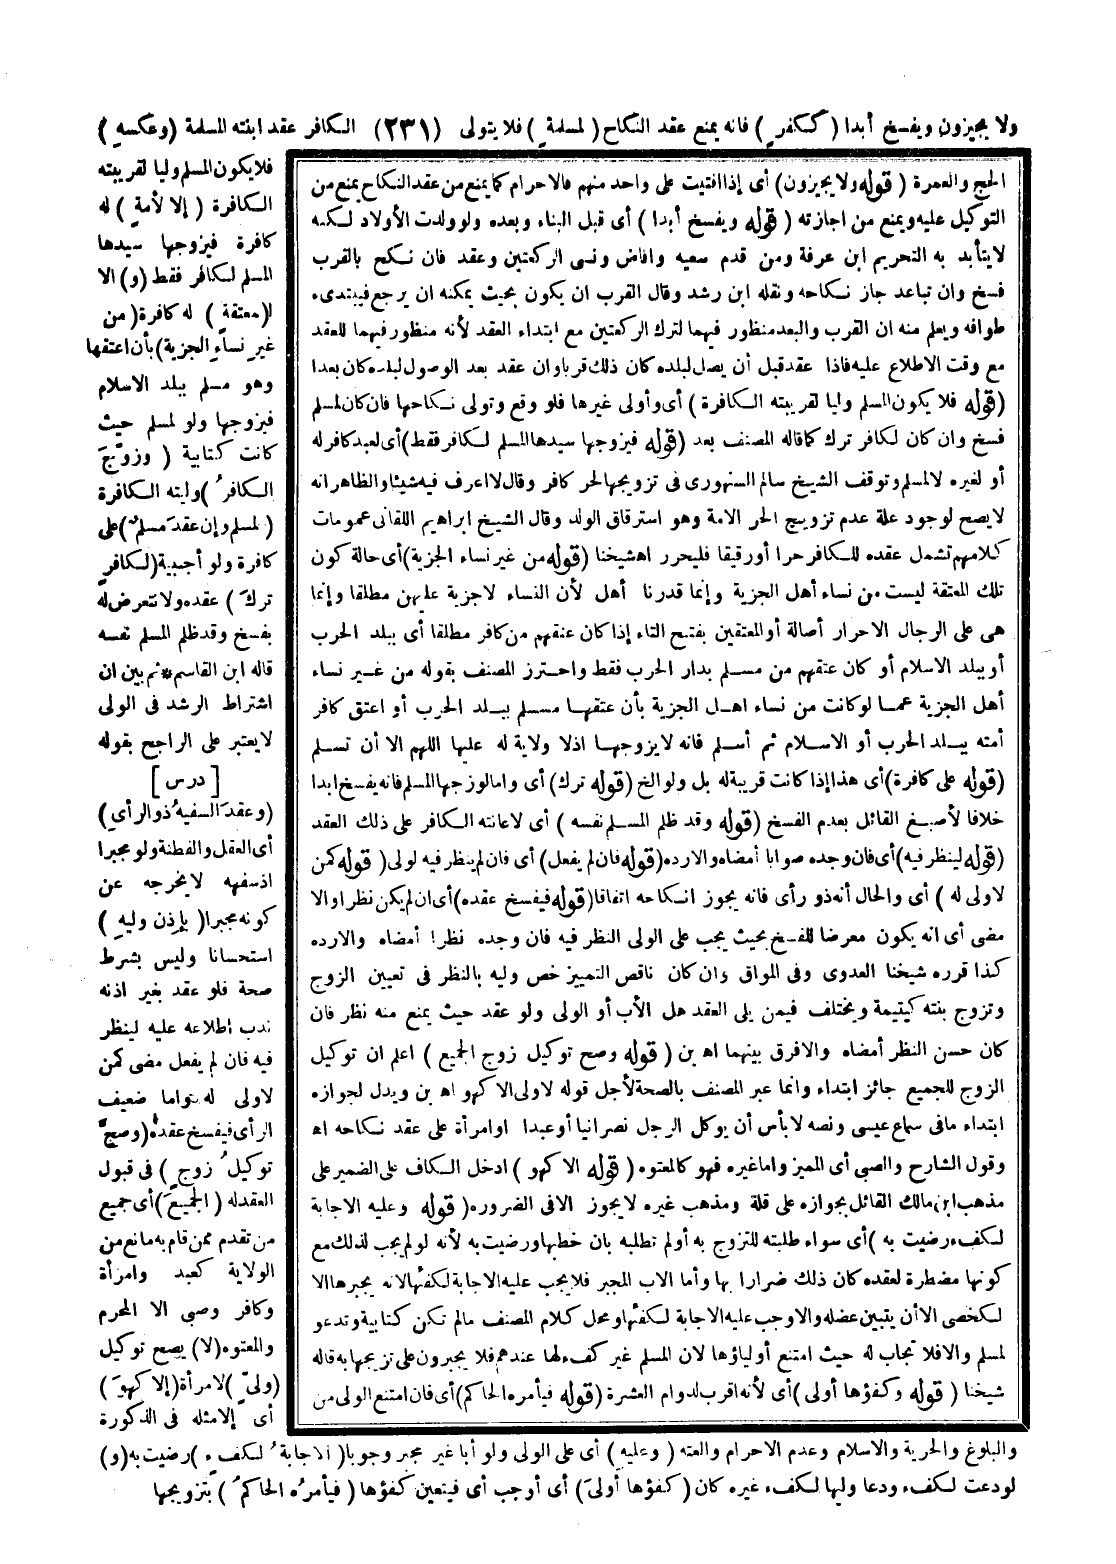 ولا يجيزون ويفسخ أبدا (ككفر) فانه يمنع عقد النكاح (لمسلمة) فلا يتولى (٢٣١) الكافر عقد ابنته المسلمة (وعكسه)
فلا يكون المسلم وليا لقريبته
الكافرة (إلا لأمة) له
كافرة فيزوجها سيدها
المسلم لكافر فقط (و) الا
ا(معتقة) له كافرة (من
غير نساء الجزية) بأن اعتقها
وهو مسلم ببلد الاسلام
فيزوجها ولو لمسلم حيث
كانت كتابية (وزوّجَ
الكافرُ) وليته الكافرة
(لمسلم وإن عقد مسلم) على
كافرة ولو أجنبية (لكافر
تركَ) عقده ولا نتعرض له
بفسخ وقد ظلم المسلم نفسه
قاله ابن القاسم * ثم بين ان
اشتراط الرشد فى الولى
لا يعتبر على الراجح بقوله
[درس]
(وعقدَ السفيهُ ذو الرأيِ)
أى العقل والفطنة ولو مجبرا
اذ سفهه لا يخرجه عن
كونه مجبرا (بإذن وليه)
استحسانا وليس بشرط
صحة فلو عقد بغير اذنه
ندب اطلاعه عليه لينظر
فيه فان لم يفعل مضى كمن
لا ولى له واما ضعيف
الرأى فيفسخ عقده (وصحَّ
توكيلُ زوجٍ) فى قبول
العقد له (الجميعَ) أى جميع
من تقدم ممن قام به مانع من
الولاية كعبد وامرأة
وكافر وصبى الا المحرم
والمعتوه (لا) يصح توكيل
(ولىّ) لامرأة (إلا كهوَ)
أى إلا مثله فى الذكورة
الحج والعمرة (قوله ولا يجيزون) أى إذا افتيت على واحد منهم فالاحرام كما يمنع من عقد النكاح يمنع من
التوكيل عليه ويمنع من اجازته (قوله ويفسخ أبدا) أى قبل البناء وبعده ولو ولدت الأولاد لكنه
لا يتأبد به التحريم ابن عرفة ومن قدم سعيه وافاض ونسى الركعتين وعقد فان نكح بالقرب
فسخ وان تباعد جاز نكاحه ونقله ابن رشد وقال القرب ان يكون بحيث يمكنه ان يرجع فيبتدىء
طوافه ويعلم منه ان القرب والبعد منظور فيهما لترك الركعتين مع ابتداء العقد لأنه منظور فيهما للعقد
مع وقت الاطلاع عليه فاذا عقد قبل أن يصل لبلده كان ذلك قربا وان عقد بعد الوصول لبلده كان بعدا
(قوله فلا يكون المسلم وليا لقريبته الكافرة) أى وأولى غيرها فلو وقع وتولى نكاحها فان كان لمسلم
فسخ وان كان لكافر ترك كما قاله المصنف بعد (قوله فيزوجها سيدها المسلم لكافر فقط) أى لعبد كافر له
أو لغيره لا لمسلم وتوقف الشيخ سالم السنهورى فى تزويجها لحر كافر وقال لا اعرف فيه شيئا والظاهر انه
لا يصح لوجود علة عدم تزويج الحر الامة وهو استرقاق الولد وقال الشيخ ابراهيم اللقانى عمومات
كلامهم تشمل عقده للكافر حرا أو رقيقا فليحرر اه شيخنا (قوله من غير نساء الجزية) أى حالة كون
تلك المعتقة ليست من نساء أهل الجزية وإنما قدرنا أهل لأن النساء لا جزية عليهن مطلقا وإنما
هى على الرجال الاحرار أصالة أو المعتقين بفتح التاء إذا كان عتقهم من كافر مطلقا أى ببلد الحرب
أو ببلد الاسلام أو كان عتقهم من مسلم بدار الحرب فقط واحترز المصنف بقوله من غير نساء
أهل الجزية عما لو كانت من نساء اهل الجزية بأن عتقها مسلم ببلد الحرب أو اعتق كافر
أمته ببلد الحرب أو الاسلام ثم أسلم فانه لا يزوجها اذ لا ولاية له عليها اللهم الا أن تسلم
(قوله على كافرة) أى هذا إذا كانت قريبة له بل ولو الخ (قوله ترك) أى واما لو زوجها لمسلم فانه يفسخ ابدا
خلافا لأصبغ القائل بعدم الفسخ (قوله وقد ظلم المسلم نفسه) أى لاعانته الكافر على ذلك العقد
(قوله لينظر فيه) أى فان وجده صوابا أمضاه والا رده (قوله فان لم يفعل) أى فان لم ينظر فيه لولى (قوله كمن
لا ولى له) أى والحال أنه ذو رأى فانه يجوز انكاحه اتفاقا (قوله فيفسخ عقده) أى ان لم يكن نظرا والا
مضى أى انه يكون معرضا للفسخ بحيث يجب على الولى النظر فيه فان وجده نظرا أمضاه والا رده
كذا قرره شيخنا العدوى وفى المواق وان كان ناقص التمييز خص وليه بالنظر فى تعيين الزوج
وتزوج بنته كيتيمة ويختلف فيمن يلى العقد هل الأب أو الولى ولو عقد حيث يمنع منه نظر فان
كان حسن النظر أمضاه والا فرق بينهما اه بن (قوله وصح توكيل زوج الجميع) اعلم ان توكيل
الزوج للجميع جائز ابتداء وانما عبر المصنف بالصحة لأجل قوله لا ولى الا كهو اه بن ويدل لجوازه
ابتداء ما فى سماع عيسى ونصه لا بأس أن يوكل الرجل نصرانيا أو عبدا او امرأة على عقد نكاحه اه
وقول الشارح والصبى أى المميز واما غيره فهو كالمعتوه (قوله الا كهو) ادخل الكاف على الضمير على
مذهب ابن مالك القائل بجوازه على قلة ومذهب غيره لا يجوز الا فى الضروره (قوله وعليه الاجابة
لكفء رضيت به) أى سواء طلبته للتزوج به أو لم تطلبه بان خطبها ورضيت به لأنه لو لم يجب لذلك مع
كونها مضطرة لعقده كان ذلك ضرارا بها وأما الاب المجبر فلا يجب عليه الاجابة لكفئها لانه يجبرها الا
لكخصى الا أن يتبين عضله والا وجب عليه الاجابة لكفئها ومحل كلام المصنف ما لم تكن كتابية وتدعو
لمسلم والا فلا تجاب له حيث امتنع أولياؤها لان المسلم غير كفء لها عندهم فلا يجبرون على تزويجها به قاله
شيخنا (قوله وكفؤها أولى) أى لأنه اقرب لدوام العشرة (قوله فيأمره الحاكم) أى فان امتنع الولى من
والبلوغ والحرية والاسلام وعدم الاحرام والعته (وعليه) أى على الولى ولو أبا غير مجبر وجوبا (الاجابةُ لكفء) رضيت به (و)
لو دعت لكفء ودعا وليها لكفء غيره كان (كفؤها أولى) أى أوجب أى فيتعين كفؤها (فيأمرُه الحاكمُ) بتزويجها